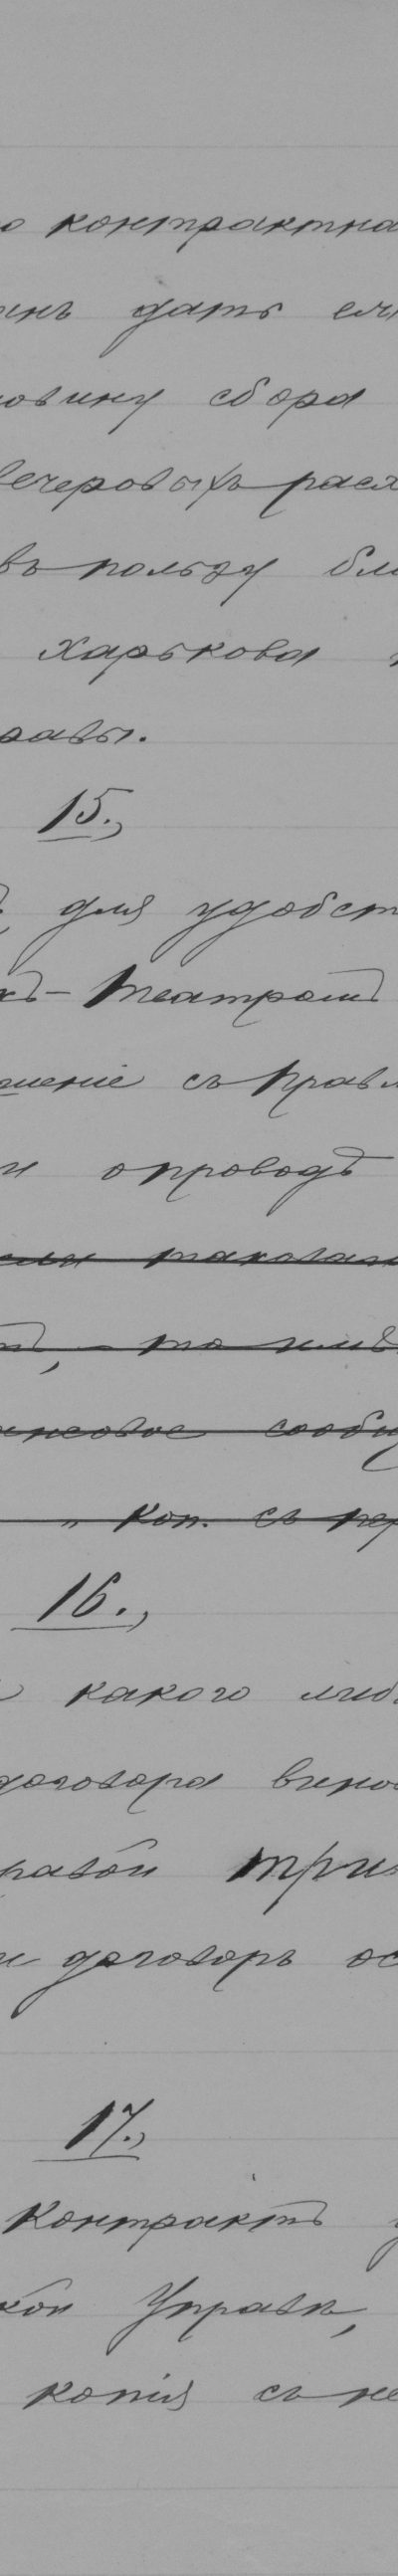 о контрактна
инъ дать ем
овину сбора
вечеровыхъ расх
въ пользу бла
Харькова
равы.
15.,
для удобст
хъ-театромъ
шение съ Правл
и опроводъ
если таковат
то имъ
нсовое сообщ
" коп. съ пер
16.,
какого либ
договора вино
равой три
и договоръ ос
17.,
Контрактъ у
кой Управѣ,
копія съ не